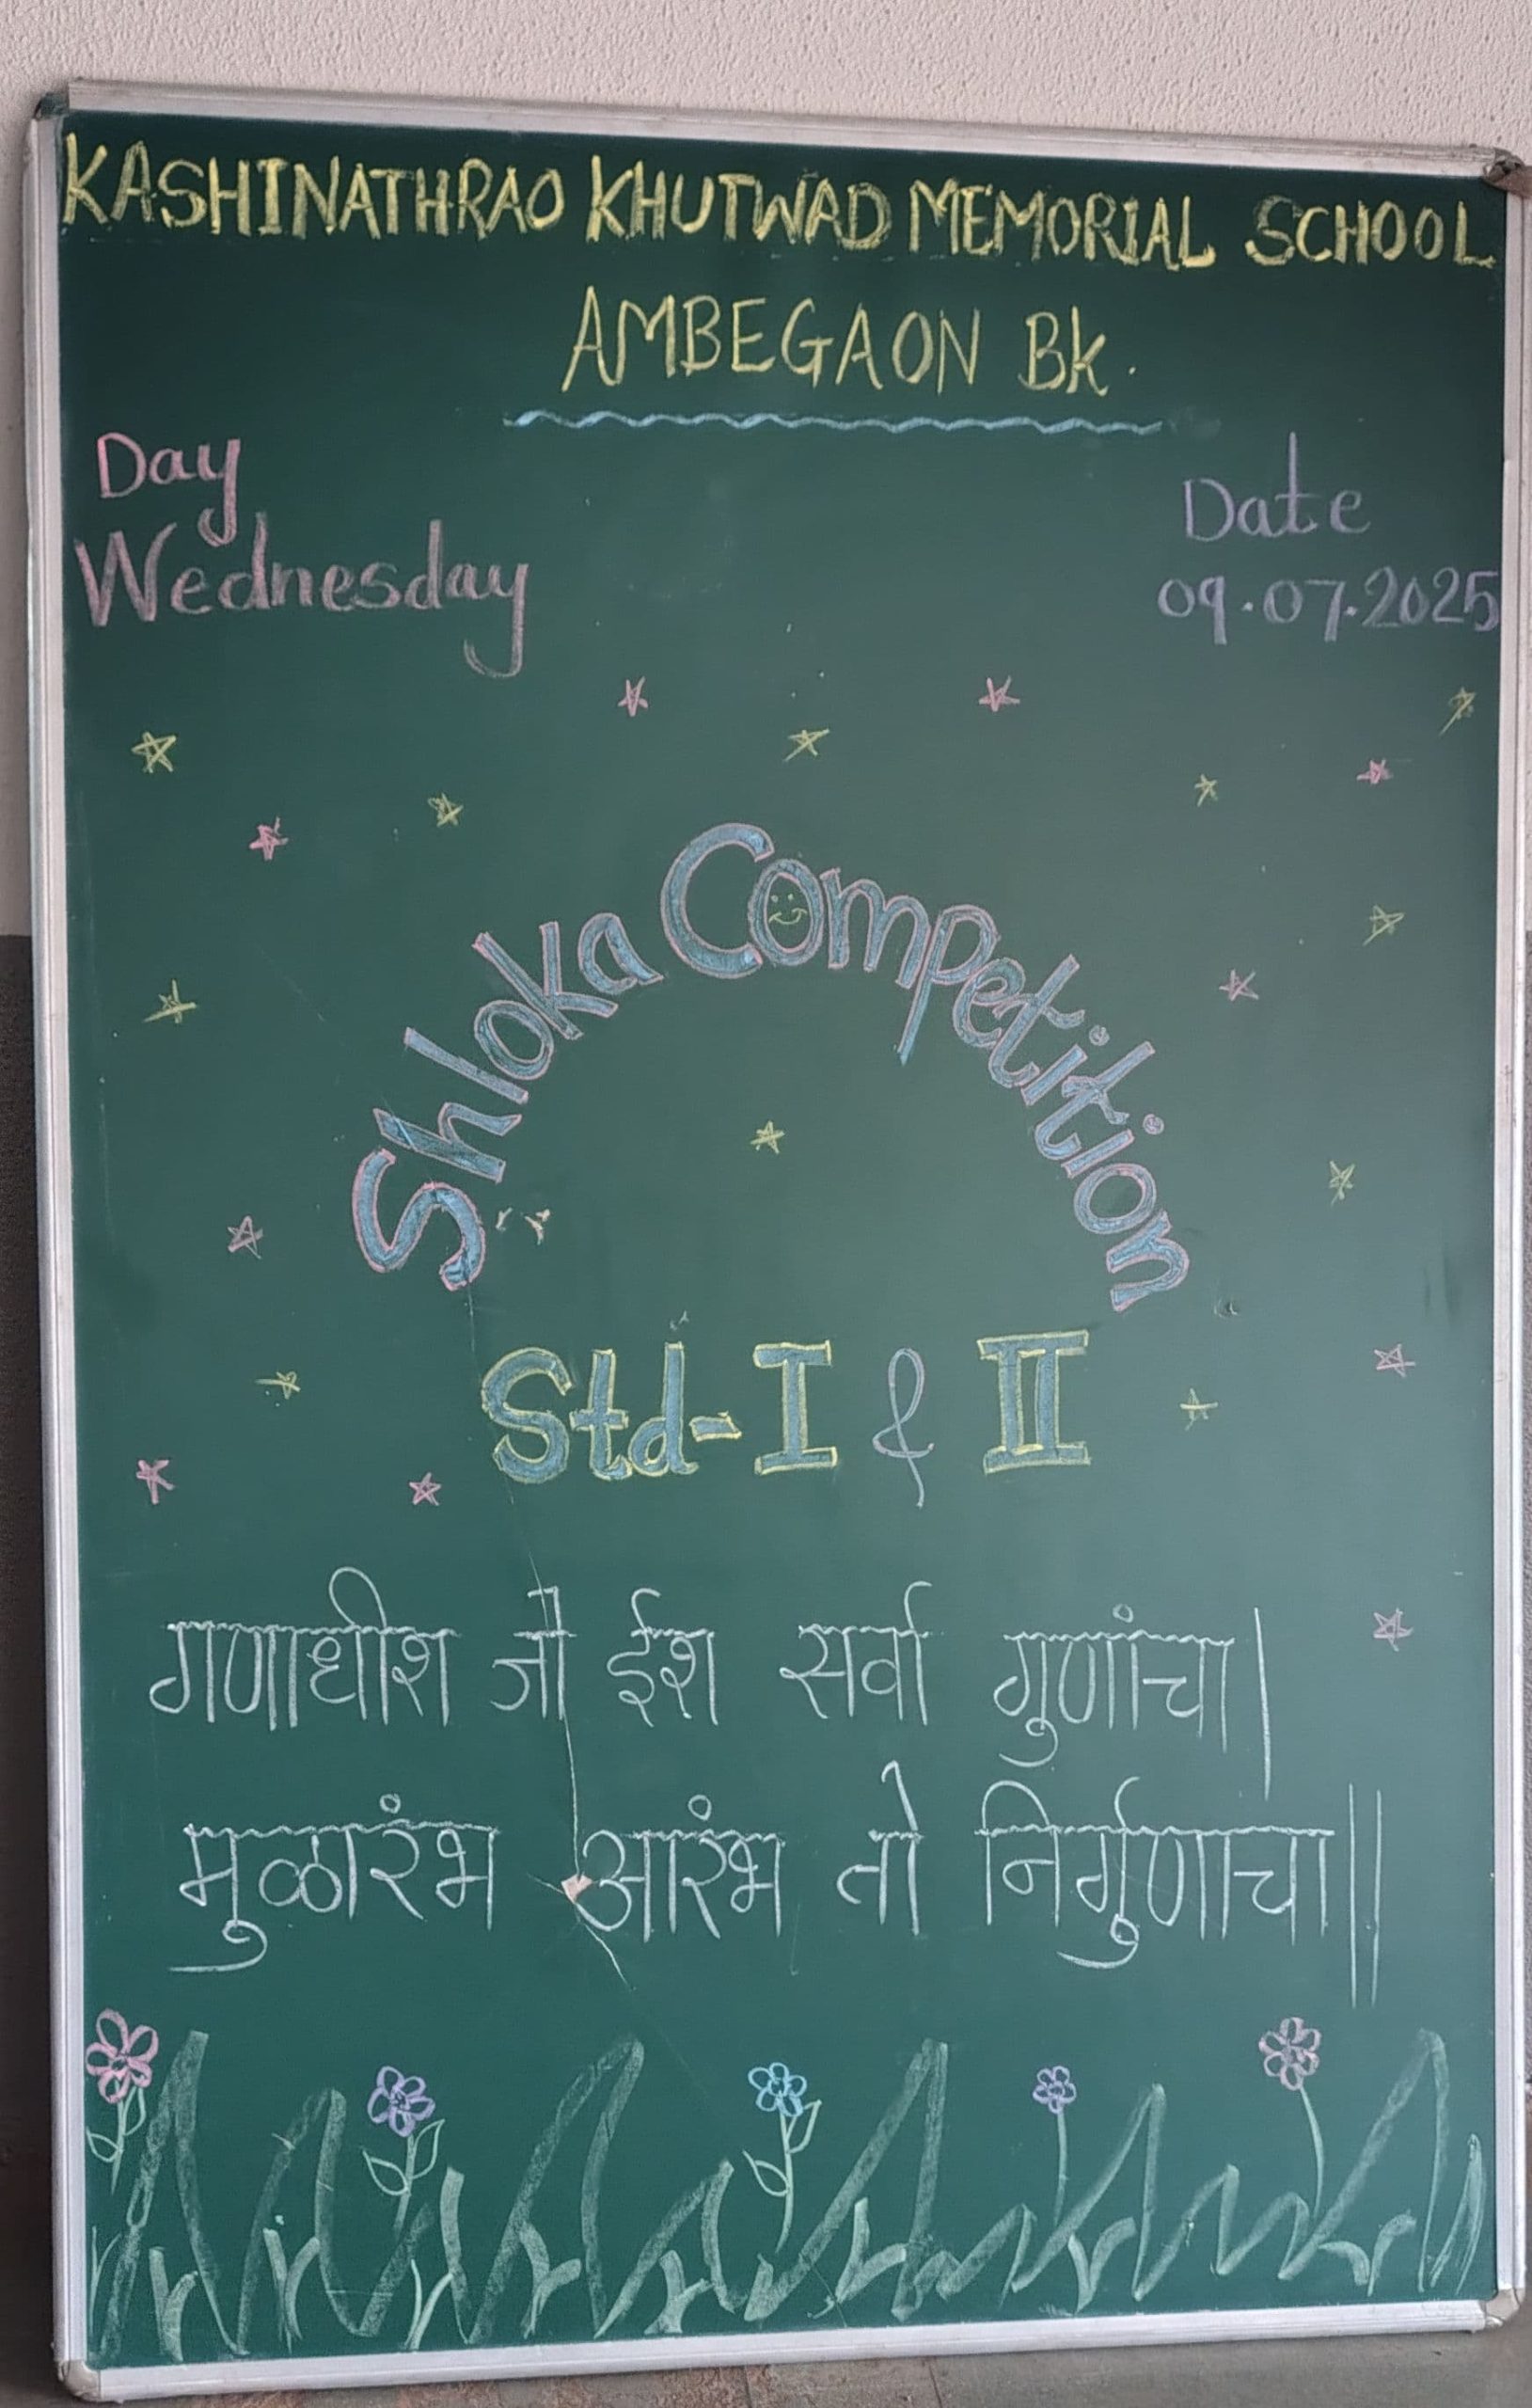 KASHINATHRAO KHUTWAD MEMORIAL SCHOOL
AMBEGAON Bk.
Day
Wednesday
Date
09.07.2025
Shloka Competition
Std-I & II
गणाधीश जो ईश सर्वा गुणांचा|
मुळारंभ आरंभ तो निर्गुणाचा||